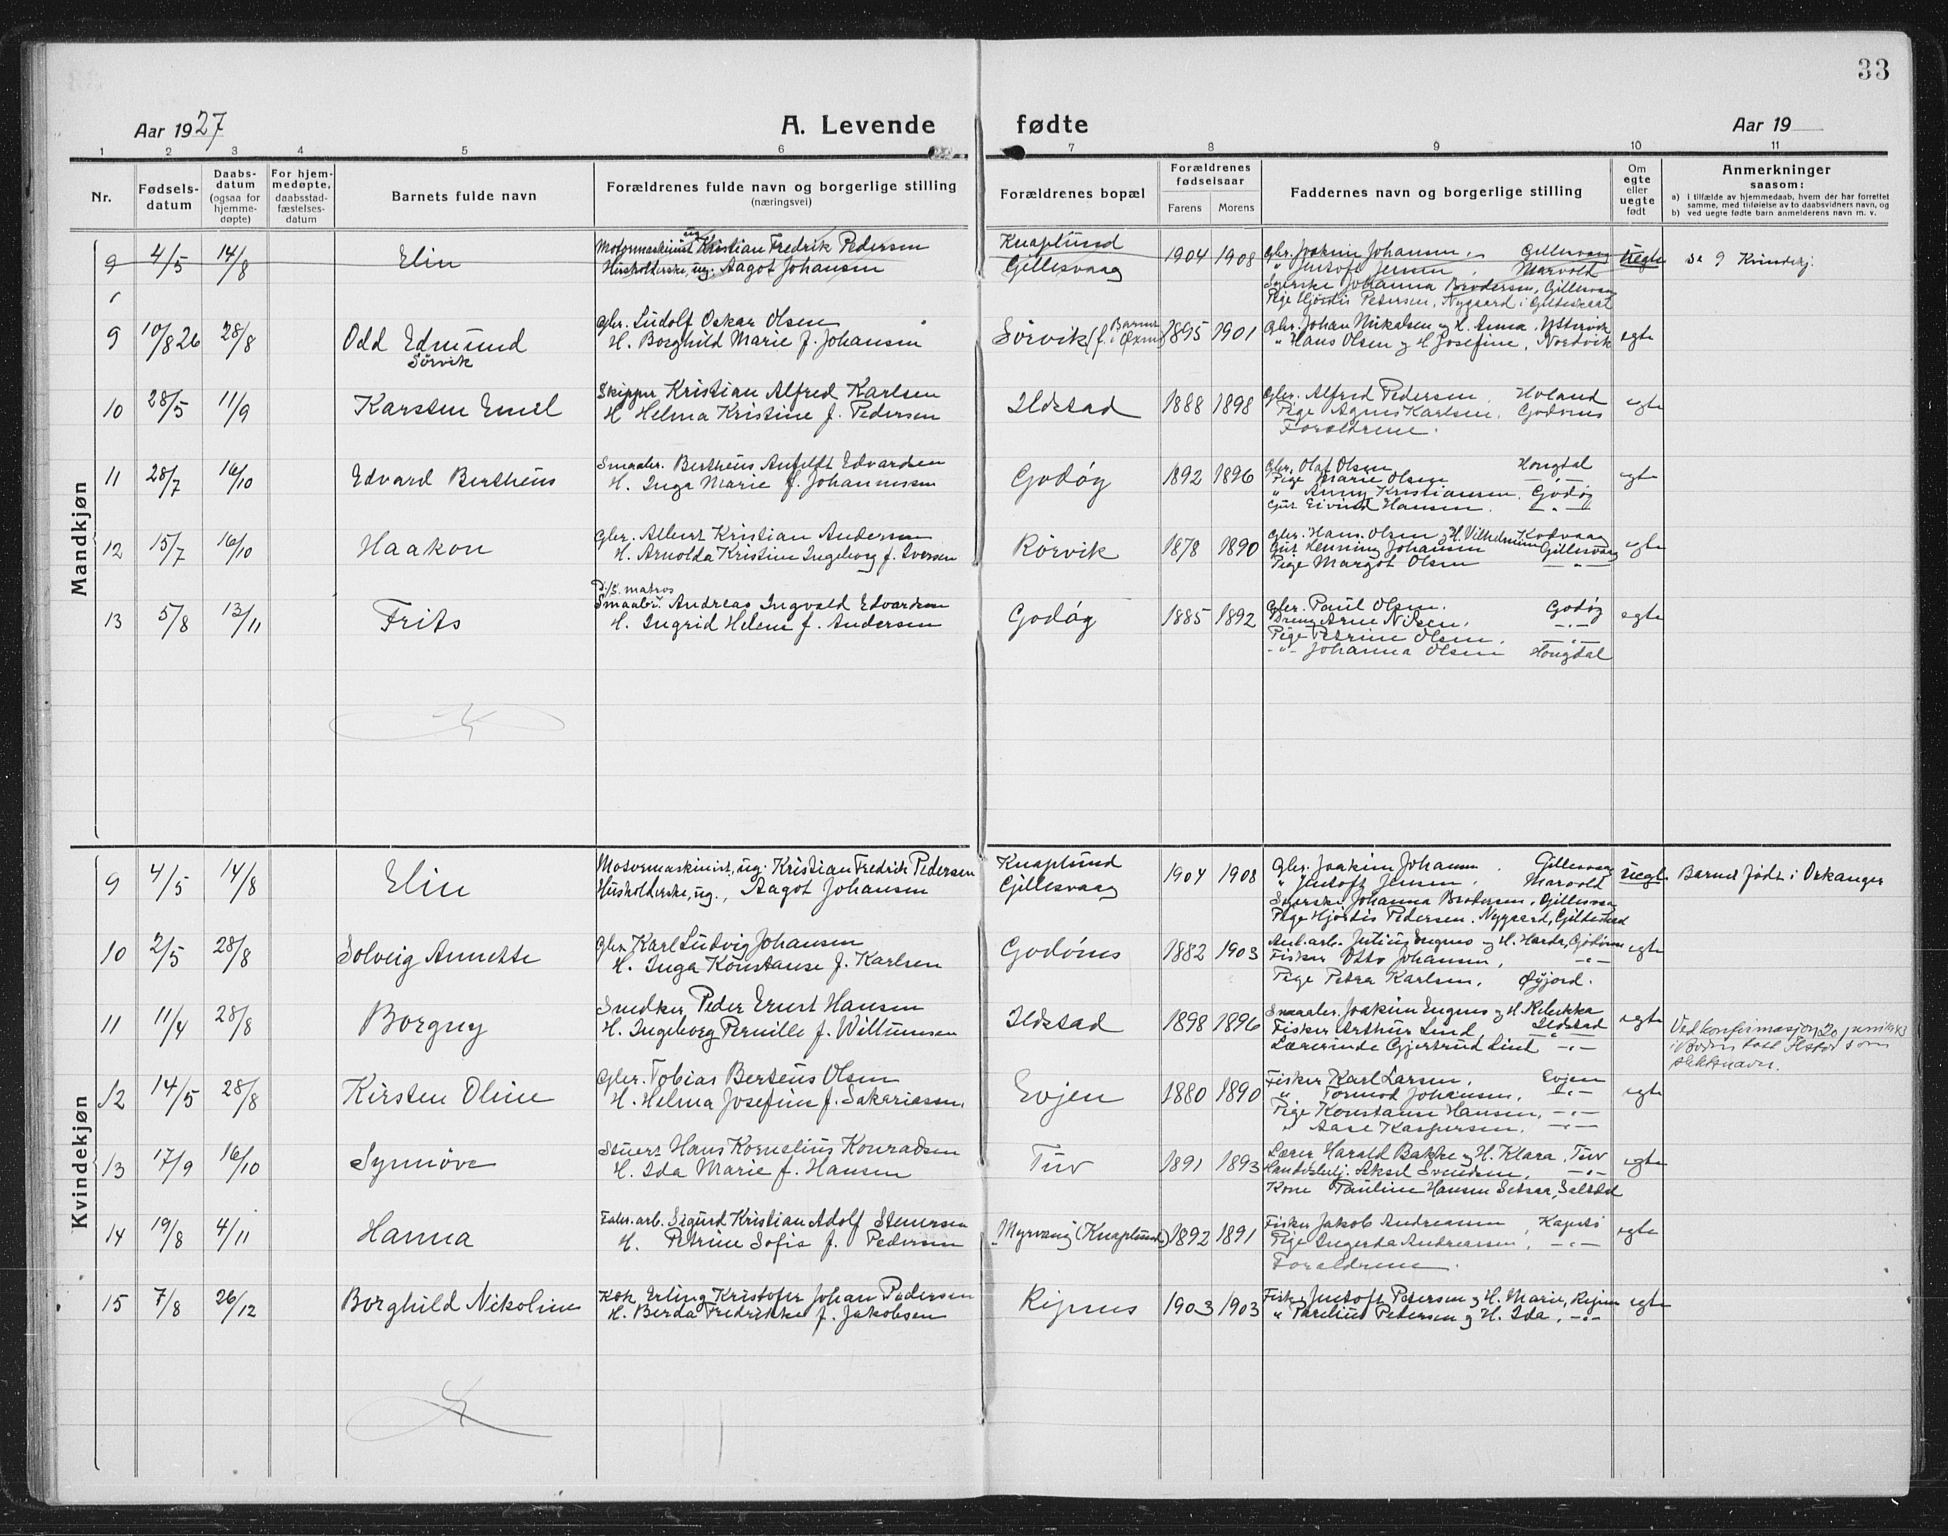 33
Aar 1927
A. Levende fødte
Aar 19
1 2 3 4 5 6 7 8 9 10 11
Nr.
Fødsels-datum
Daabs-datum (ogsaa for hjemme-døpte)
For hjem-medøpte, daabsstad-fæstelses-datum
Barnets fulde navn
Forældrenes fulde navn og borgerlige stilling (næringsvei)
Forældrenes bopæl
Forældrenes fødselsaar
Farens Morens
Faddernes navn og borgerlige stilling
Om egte eller uegte født
Anmerkninger saasom:
a) i tilfælde av hjemmedaab, hvem der har forrettet samme, med tilføielse av to daabsvidners navn, og
b) ved uegte fødte barn anmelderens navn m. v.
Mandkjøn
9 4/5 14/8 Elin
Motormaskinist ug. Kristian Fredrik Pedersen
Husholderske, ug. Aagot Johansen
Knaplund
Gillesvaag
1904 1908
Gbr. Joakim Johansen, Gillesvaag
" Justoft Jensen, Marvold
Syerske Johanna Brodersen, Gillesvaag
Pige Hjørdis Pedersen, Nygaard i Gildeskaal
uegte
se 9 Kvindekj.
9 10/8 26 28/8 Odd Edmund
Sørvik
Gbr. Ludolf Oskar Olsen
H. Borghild Marie f. Johansen
Sørvik
1895 1901
Gbr. Johan Nikolsen og H. Anna, Ystervik
" Hans Olsen og H. Josefine, Nordvik
egte
10 28/5 11/9 Karsten Emil
Skipper Kristian Alfred Karlsen
H. Helma Kristine f. Pedersen
Ildstad
1888 1898
Gbr. Alfred Pedersen, Hovland
Pige Agnes Karlsen, Godønes
Forældrene.
egte
11 28/7 16/10 Edvard Bertheus
Smaabr. Bertheus Anfeldt Edvardsen
H. Inga Marie f. Johannessen
Godøy
1892 1896
Gbr. Olaf Olsen Hongdal
Pige Marie Olsen — " —
" Anny Kristiansen, Godøy
Gut Eivind Hansen — " —
egte
12 15/7 16/10 Haakon
Gbr. Albert Kristian Andersen
H. Arnolda Kristine Ingeborg f. Iversen
Rørvik
1878 1890
Gbr. Hans Olsen og H. Vilhelmine Kodvaag
Gut Henning Johansen Gillesvaag
Pige Margot Olsen — " —
egte
13 5/8 13/11 Frits
D/S. matros
Smaabr. Andreas Ingvald Edvardsen
H. Ingrid Helene f. Andersen
Godøy
1885 1892
Gbr. Paul Olsen. Godøy
Dreng Arne Nilsen, — " —
Pige Petrine Olsen, — " —
— " — Johanna Olsen Hongdal
egte
Kvindekjøn
9 4/5 14/8 Elin
Motormaskinist, ug. Kristian Fredrik Pedersen
Husholderske, ug., Aagot Johansen
Knaplund
Gillesvaag
1904 1908
Gbr. Joakim Johansen. Gillesvaag
" Justoft Jensen, Marvold
Syerske Johanna Brodersen, Gillesvaag
Pige Hjørdis Pedersen, Nygaard, Gildeskaal
uegte
Barnet født i Orkanger
10 2/5 28/8 Solveig Annette
Gbr. Karl Ludvig Johansen
H. Inga Konstanse f. Karlsen
Godønes
1882 1903
Anl.arb. Julius Engnes og H. Harda, Godønes
Fisker Otto Johansen, — " —
Pige Petra Karlsen, Øyjord.
egte
11 11/4 28/8 Borgny
Snedker Peder Ernst Hansen
H. Ingeborg Pernille f. Willumsen
Ildstad
1898 1896
Smaabr. Joakim Engnes og H. Rebekka
Fisker Arthur Lind Ildstad
Lærerinde Gjertrud Lind — " —
egte
Ved konfirmasjon 20 juni 1943
i Bodin tatt Ilstad som
slektsnavn.
12 14/5 28/8 Kirsten Oline
Gbr. Tobias Berteus Olsen
H. Helma Josefine f. Sakariassen,
Evjen
1880 1890
Fisker Karl Larsen, Evjen
" Tormod Johansen, — " —
Pige Konstanse Hansen, — " —
" Aase Kaspersen, — " —
egte
13 17/9 16/10 Synnøve
Stuert Hans Kornelius Konradsen
H. Ida Marie f. Hansen
Tuv
1891 1893
Lærer Harald Bakke og H. Klara, Tuv
Handelsbetj. Aksel Svendsen, — " —
Kone Pauline Hansen Setsaa, Saltdal
egte
14 19/8 4/11 Hanna
Fabr. arb. Sigurd Kristian Adolf Stenersen
H. Petrine Sofie f. Pedersen
Myrvang (Knaplund)
1892 1891
Fisker Jakob Andreassen, Kapstø
Pige Ingerda Andreassen, — " —
Forældrene.
egte
15 7/8 26/12 Borghild Nikoline
Kok Erling Kristofer Johan Pedersen
H. Berda Fredrikke f. Jakobsen
Ripnes
1903 1903
Fisker Justoft Petersen og H. Marie, Ripnes
" Parelius Petersen og H. Ida, — " —
egte